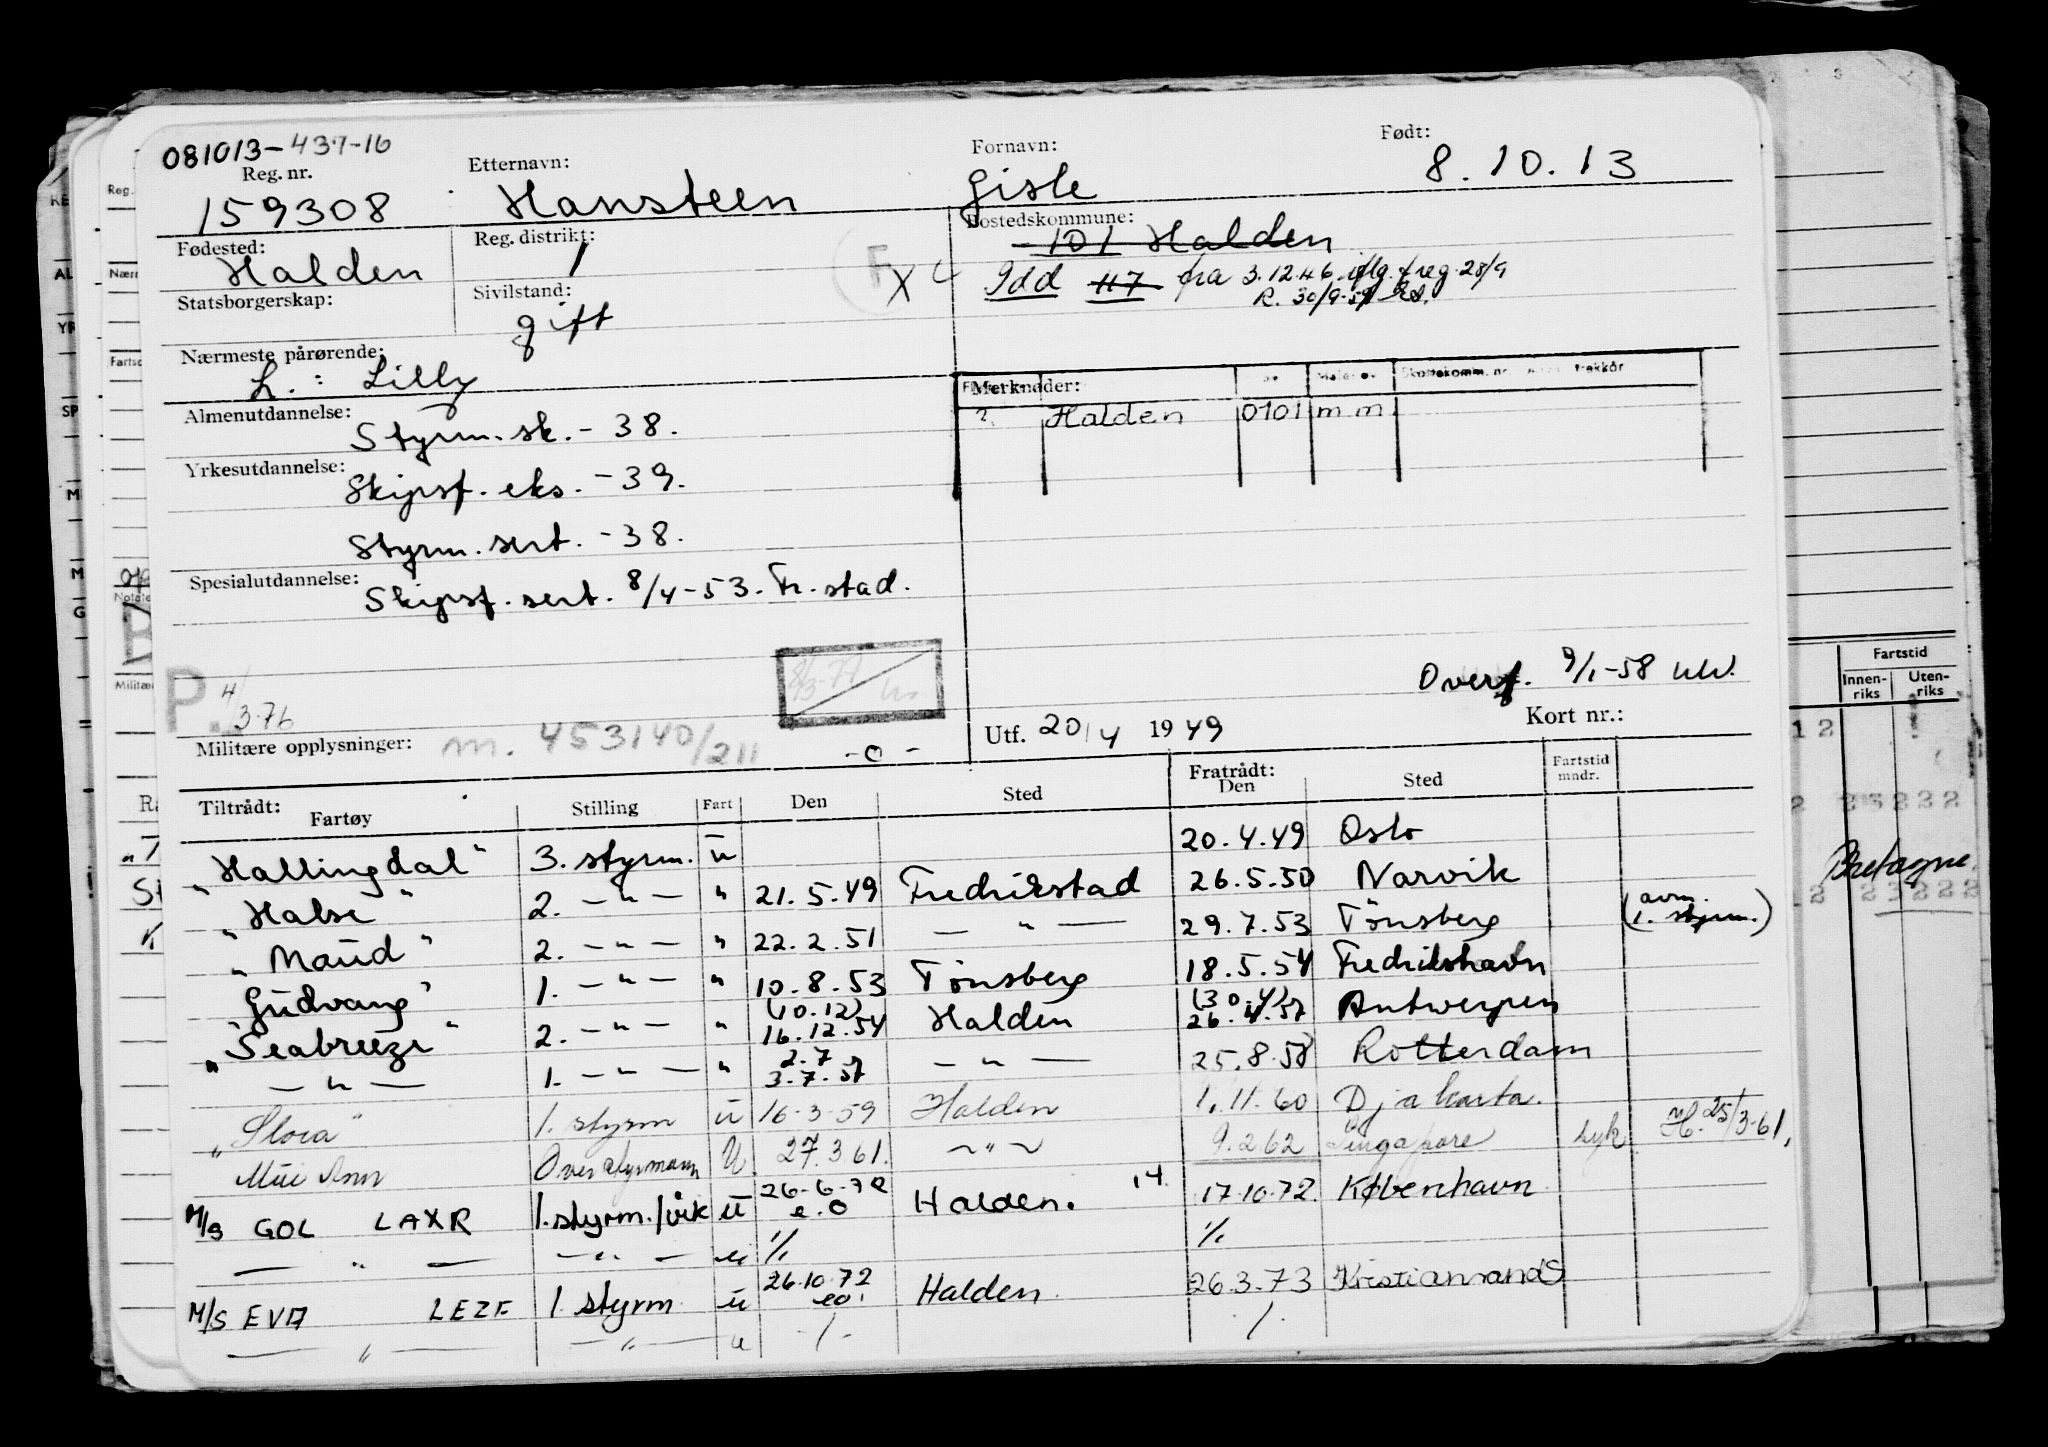 081013-437-16
Reg. nr. Etternavn: Fornavn: Født:
159308 Hansteen Gisle 8.10.13
Fødested: Reg. distrikt: Bostedskommune:
Halden 1 101 Halden
Statsborgerskap: Sivilstand: Idd 117 fra 3.12.46 iflg. freg. 28/9
gift R. 30/9-59
Nærmeste pårørende:
h.: Lilly
Merknader:
Almenutdannelse: Halden 0101 m m
Styrm.sk. - 38.
Yrkesutdannelse:
Skipsf. eks. - 39.
Styrm. sert. - 38.
Spesialutdannelse:
Skipsf. sert. 8/4-53. Fr. stad.
Overf. 9/1-58
P. 4/3-76
Militære opplysninger: m. 453140/211 - o - Utf. 20/4 1949 Kort nr.:
Tiltrådt: Fratrådt: Fartstid
Fartøy Stilling Fart Den Sted Den Sted mndr.
"Hallingdal" 3. styrm. u 20.4.49 Oslo
"Halse" 2. - " - " 21.5.49 Fredrikstad 26.5.50 Narvik
"Maud" 2. - " - " 22.2.51 - " - 29.7.53 Tønsberg (avm. 1. styrm.)
"Gudvang" 1. - " - " 10.8.53 Tønsberg 18.5.54 Fredrikshavn
"Seabreeze" 2. - " - " (10.12) 16.12.54 Halden (30.4) 26.4.57 Antwerpen
- " - 1. - " - " 2.7 3.7.57 - " - 25.8.58 Rotterdam
"Slora" 1. styrm u 16-3-59 Halden 1.11.60 Djakarta.
Mui Ann Overstyrmann U 27.3.61. - " - 9.2.62 Singapore syk H. 25/3-61,
M/S GOL LAXR 1.styrm./vik u 26-6-72 e.o Halden. 14 17.10.72. København
- " - - " - u 1/. 1/.
M/S EVA LEZF 1. styrm u 26.10.72 eo. Halden 26.3.73 Kristiansand S
- " - - " - u -/- /.
Fartstid
Innen-riks Uten-riks
Bretagne